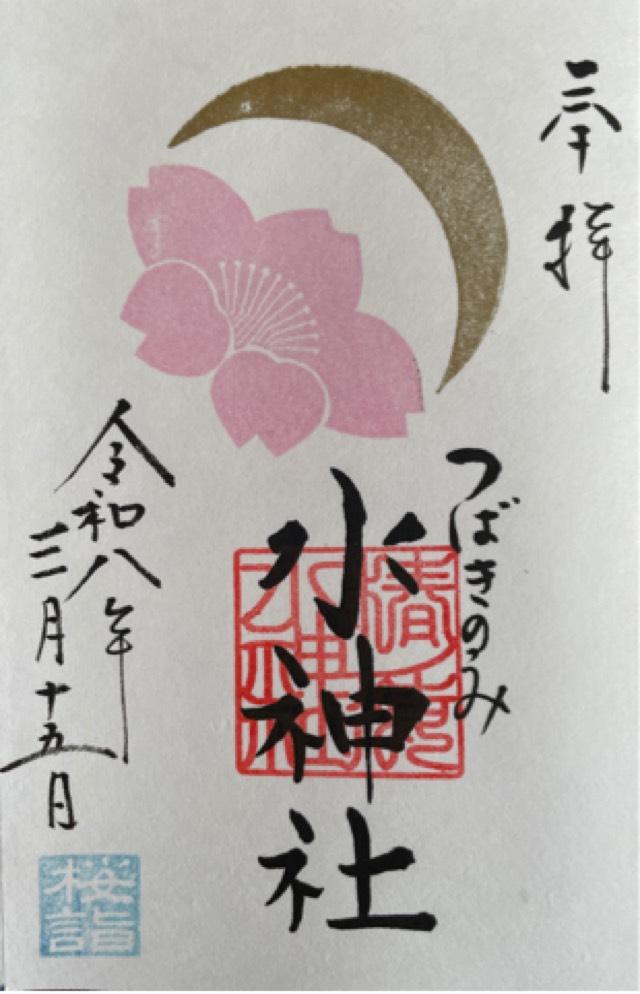 奉拝
つばきのみ
水神社
令和八年
三月十五日
桜詣